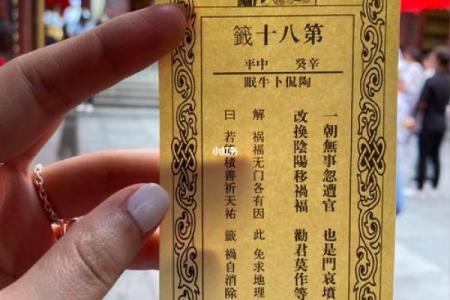 第八十籤
辛癸 中平
陶侃卜牛眠
一朝無事忽遭官 也是門哀墳
改換陰陽移禍福 勸君莫作等
解 祸福无门各有因 此 免求地理
曰 若積善祈天祐 籤 禍自消除
小红书